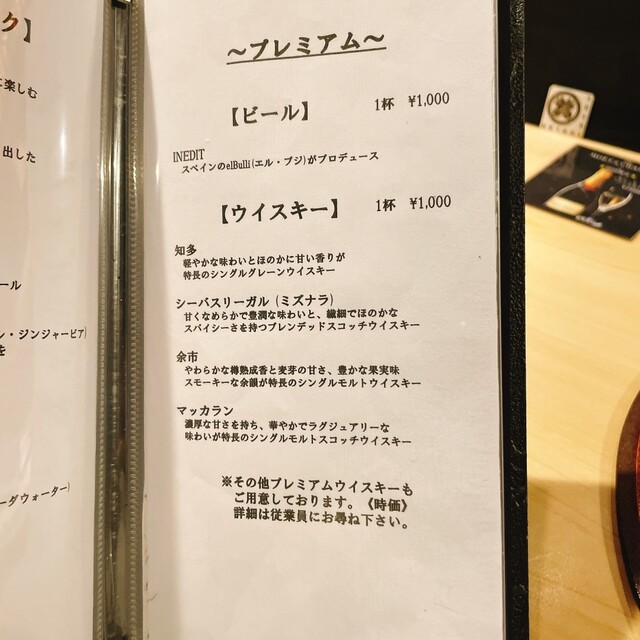 ク】
楽しむ
出した
ール
ン・ジンジャービア)
を
ーダウォーター)
～プレミアム～
【ビール】 1杯 ¥1,000
INEDIT
スペインのelBulli(エル・ブジ)がプロデュース
【ウイスキー】 1杯 ¥1,000
知多
軽やかな味わいとほのかに甘い香りが
特長のシングルグレーンウイスキー
シーバスリーガル (ミズナラ)
甘くなめらかで豊潤な味わいと、繊細でほのかな
スパイシーさを持つブレンデッドスコッチウイスキー
余市
やわらかな樽熟成香と麦芽の甘さ、豊かな果実味
スモーキーな余韻が特長のシングルモルトウイスキー
マッカラン
濃厚な甘さを持ち、華やかでラグジュアリーな
味わいが特長のシングルモルトスコッチウイスキー
※その他プレミアムウイスキーも
ご用意しております。《時価》
詳細は従業員にお尋ね下さい。